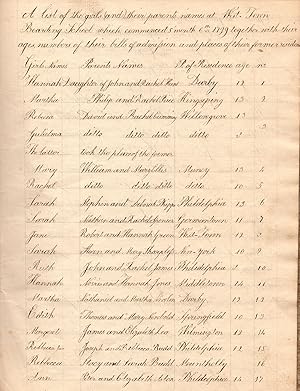 A list of the girls and their parents names at West-Town
Boarding School which commenced 5 month 6th 1799 together with their
ages, number of their bills of admission and places of their former residence
Girls Names Parents Names Pl. of Residence age no.
Hannah Daughter of John and Rachel Hunt Darby 12 1
Martha Philip and Rachel Kingsessing 13 2
Rebecca David and Rachel Willongrove 13
Gulielma ditto ditto ditto ditto 3
The latter took the place of the former
Mary William and Mary Ellis Muncy 13 4
Rachel ditto ditto ditto ditto 10 5
Sarah Stephen and Philadelphia 13 6
Sarah Nathan and Rachel Jones Germantown 11 7
Jane Robert and Hannah Green West-Town 13 8
Sarah and Mary New-York 10 9
Ruth John and Rachel James Philadelphia 10
Hannah and Hannah Jones Middletown 14 11
Martha Nathaniel and Martha Darby 13 12
Edith Thomas and Mary Newbold Springfield 10 13
Margaret James and Elizabeth Lea Wilmington 13 14
Rebecca Joseph and Rebecca Budd Philadelphia 12 15
Rebecca and Sarah Budd Mountholly 16
Ann and Elizabeth Philadelphia 14 17